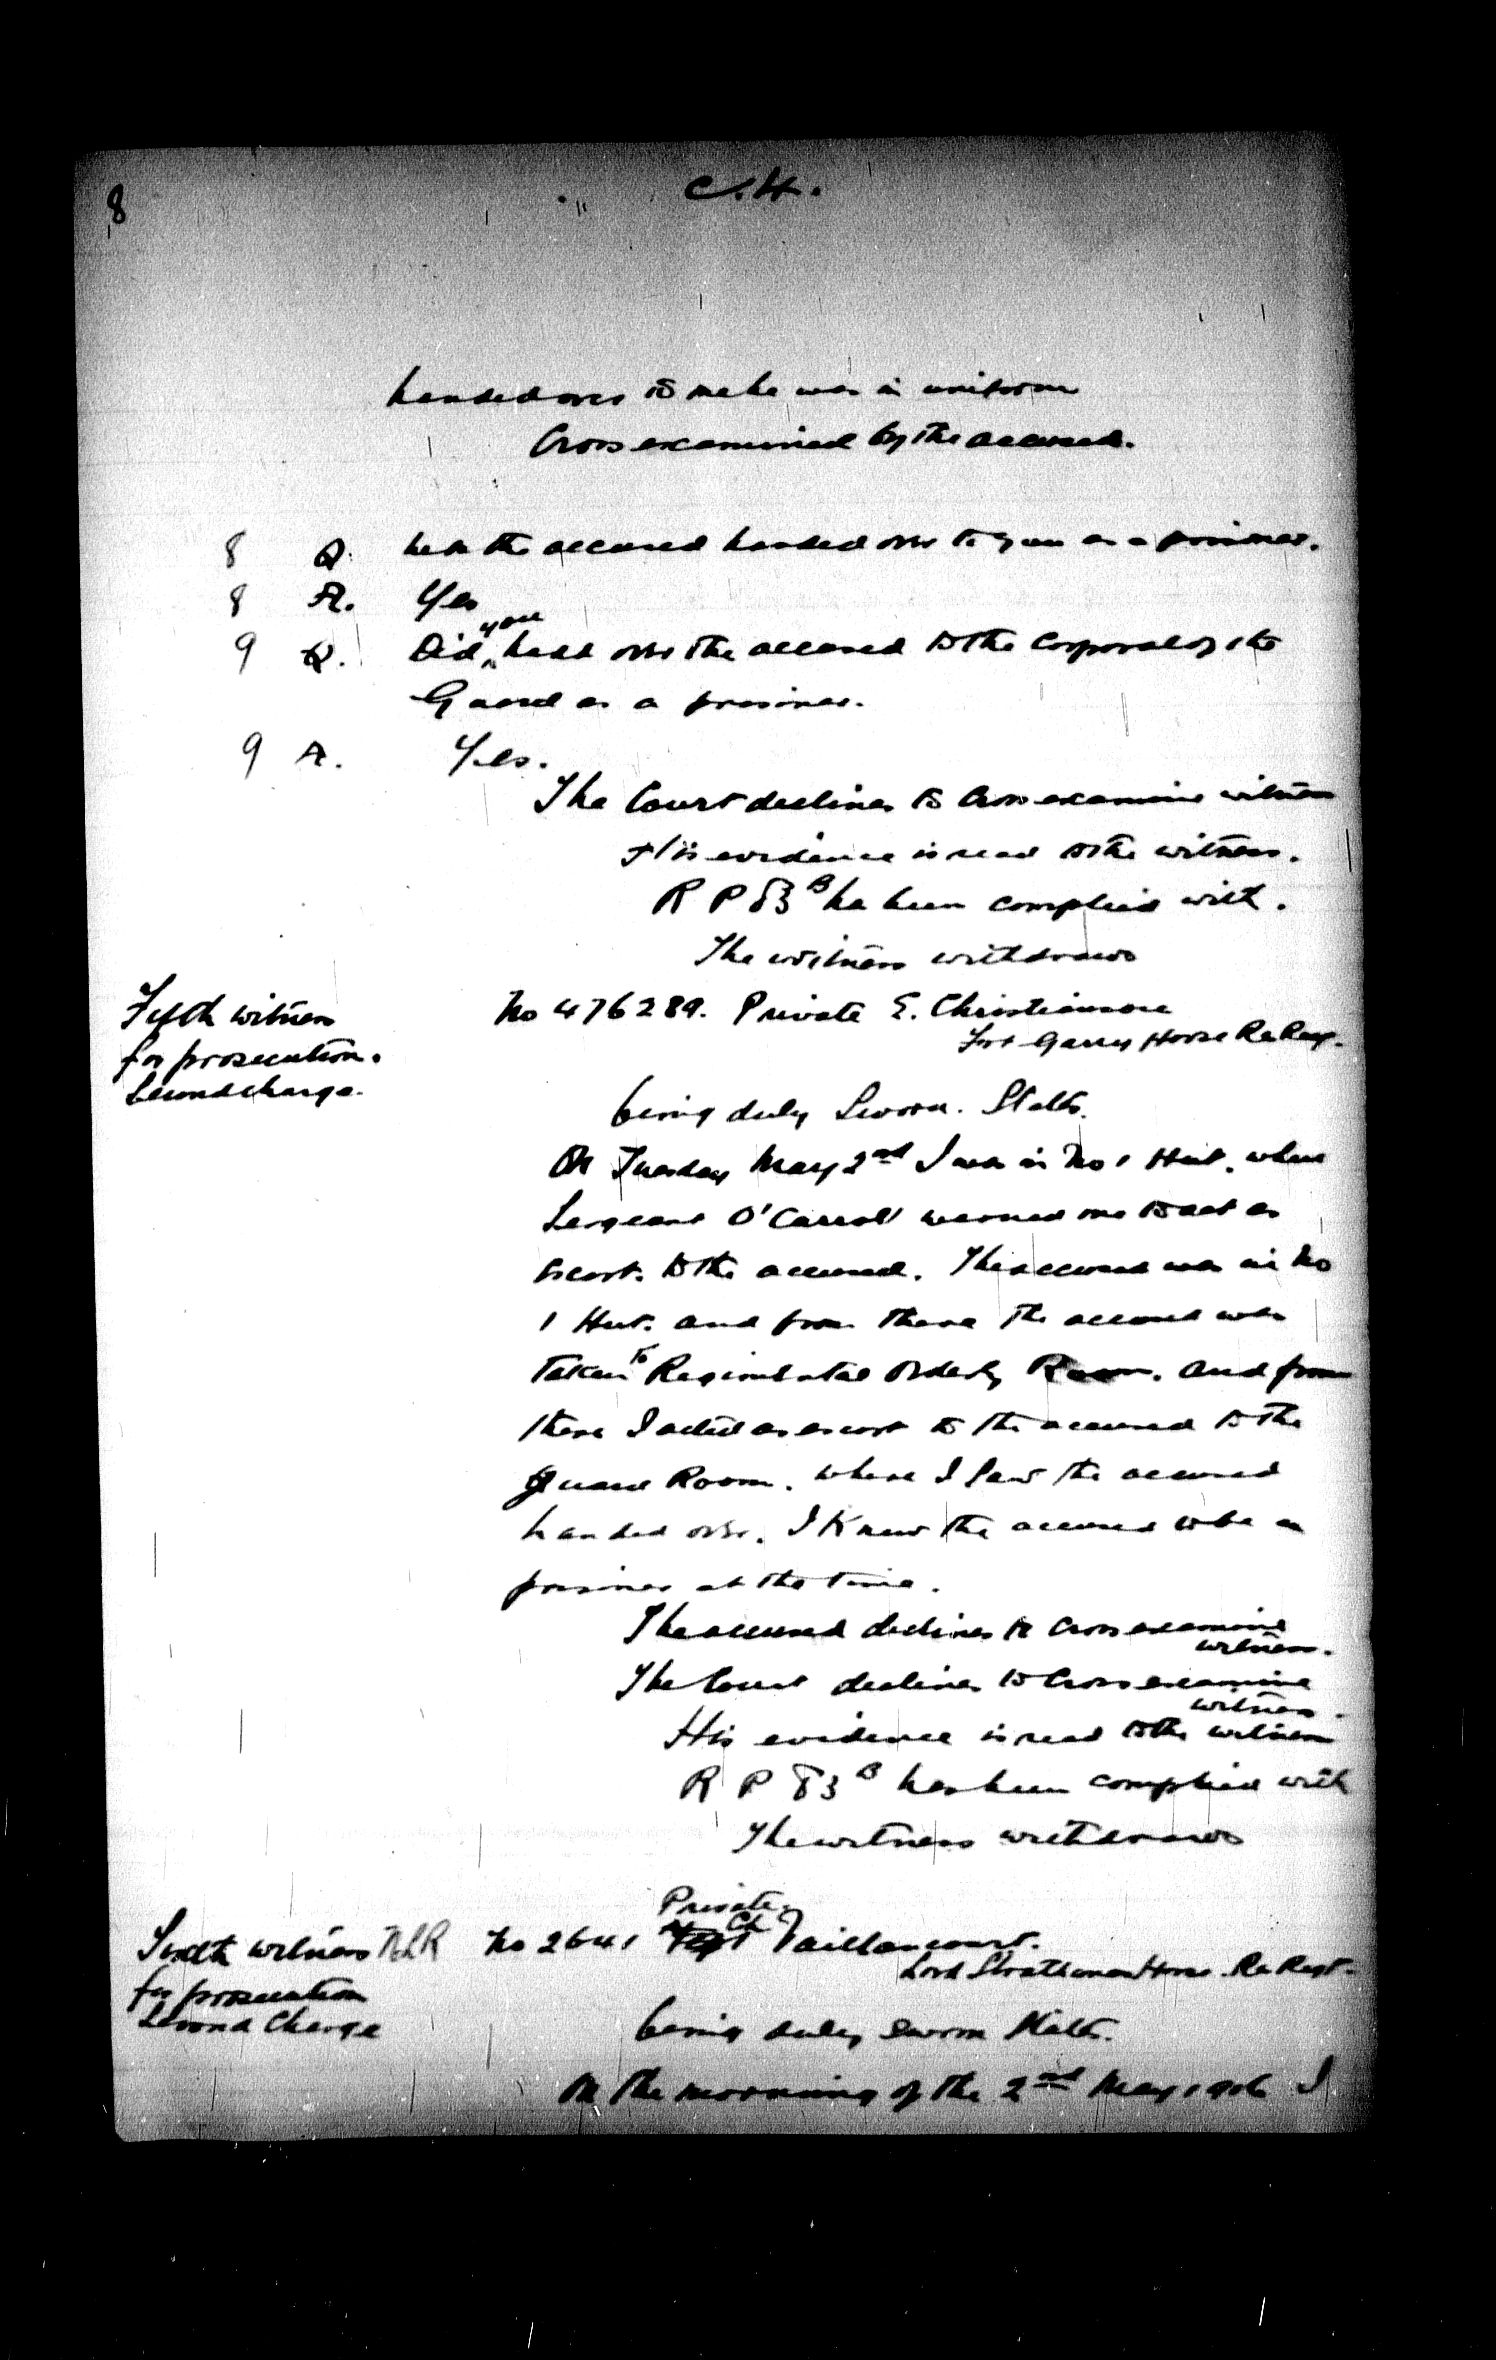 8
C.H.
handed over to me he was in uniform
Cross examined by the accused.
8 Q. Was the accused handed over to you as a prisoner.
8 A. Yes
9 Q. Did you hand over the accused to the Corporal of the
Guard as a prisoner.
9 A. Yes.
The Court declines to Cross examine witness
His evidence is read to the witness.
R P 83 B has been complied with.
The witness withdraws
Fifth witness
for prosecution.
Second charge.
No 476289. Private E. Christianson
Fort Garry Horse Re Regt.
being duly Sworn. States.
On Tuesday May 2nd I was in No 1 Hut. when
Sergeant O'Carroll warned me to act as
escort. to the accused. The accused was in No
1 Hut. and from there the accused was
taken to Regimental Orderly Room. and from
there I acted as escort to the accused to the
Guard Room. where I saw the accused
handed over. I Knew the accused to be a
prisoner at the time.
The accused declines to Cross examine
witness.
The Court declines to Cross examine
witness.
His evidence is read to the witness
R P 83 B has been complied with
The witness withdraws
Sixth witness
for prosecution
Second Charge
No 2641 Private Ch Vaillancourt.
Lord Strathconas Horse. Re Regt.
being duly sworn States.
On the morning of the 2nd May 1916 I